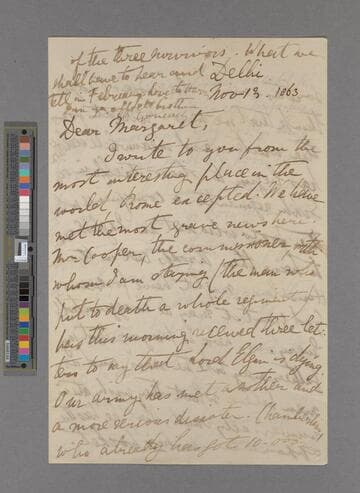 of the three survivors. What we
shall have to hear and
tell in February
Delhi
Nov 13. 1863
Dear Margaret,
I write to you from the
most interesting place in the
world, Rome excepted. We have
met the most grave news here.
Mr Cooper, the commissioner, with
whom I am staying (the man who
put to death a whole regiment)
has this morning received three let-
ters to say that Lord Elgin is dying.
Our army has met another and
a more serious disaster. Chamberlain,
who already has got 10.000